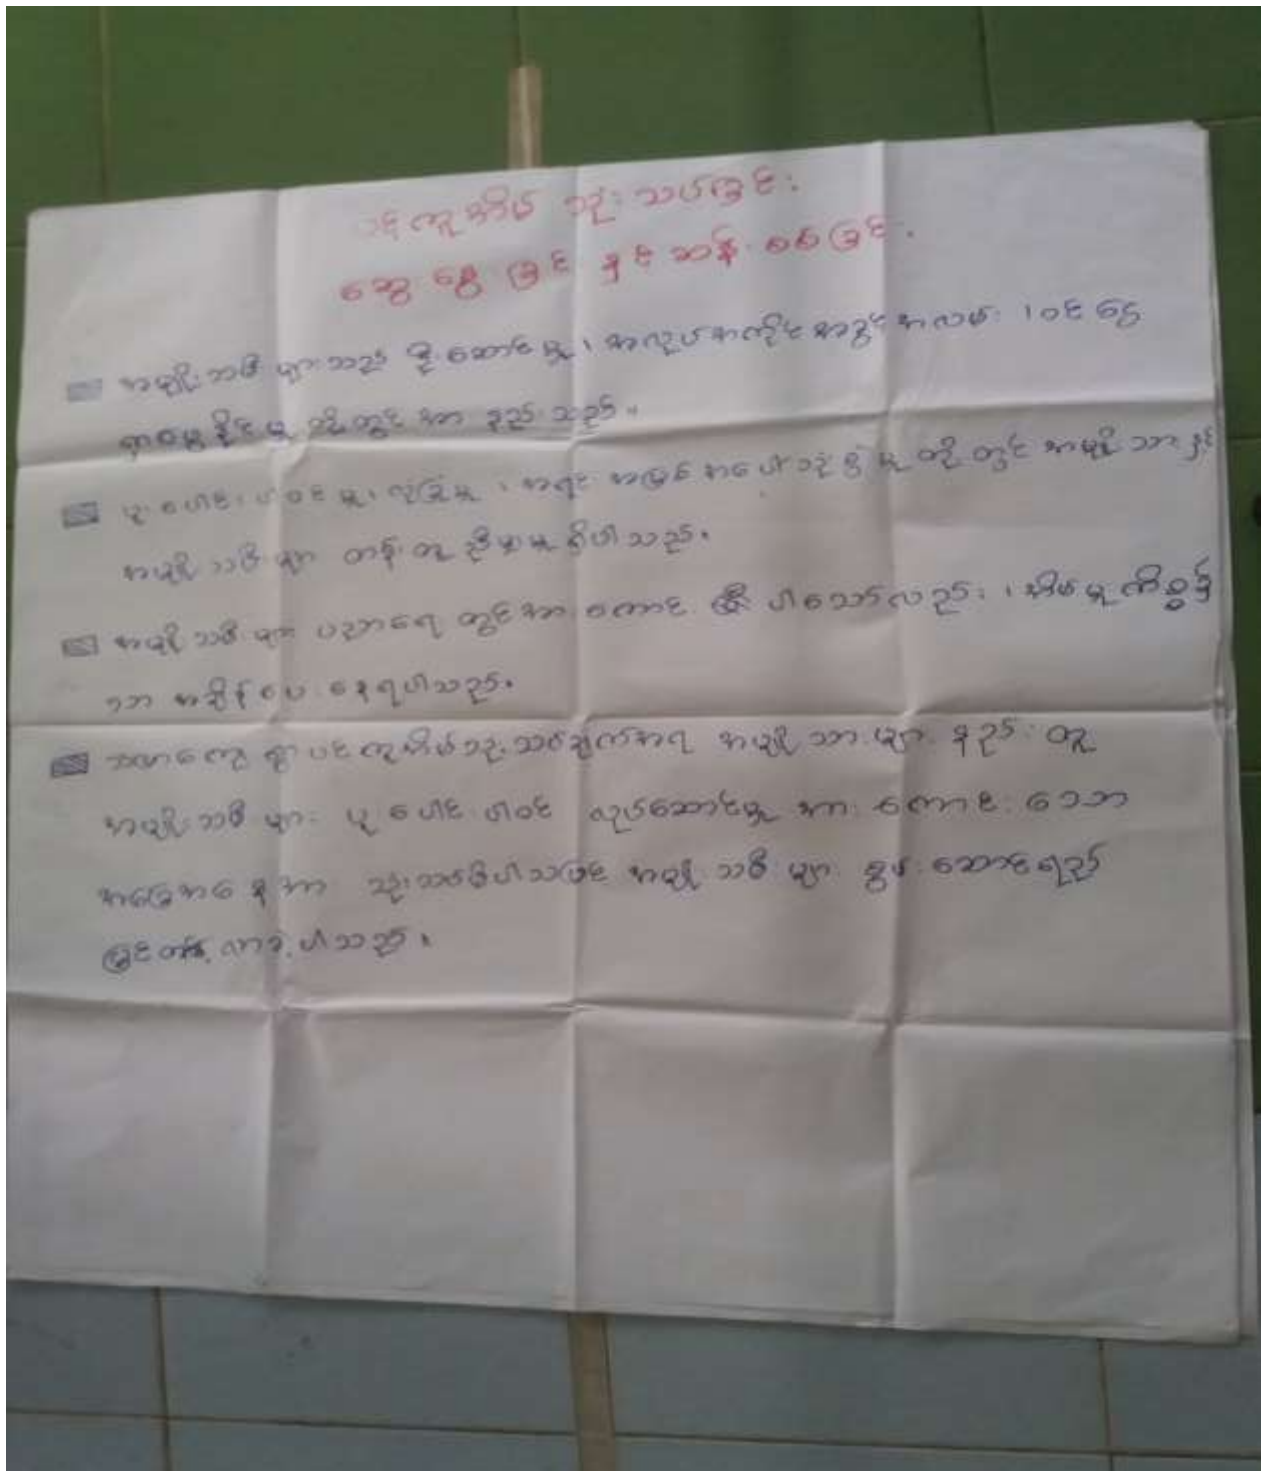 ပင့်ကူအိမ် သုံးသပ်ခြင်း
ဆွေးနွေးခြင်းနှင့် ဆန်းစစ်ခြင်း
အမျိုးသမီးများသည် ဦးဆောင်မှု၊ အလုပ်အကိုင်အခွင့်အလမ်း၊ ဝင်ငွေ
ရှာဖွေနိုင်မှု တို့တွင် အားနည်းသည်။
ပူးပေါင်းပါဝင်မှု၊ လုံခြုံမှု၊ အရင်းအမြစ်အပေါ်သုံးစွဲမှု တို့တွင် အမျိုးသားနှင့်
အမျိုးသမီးများ တန်းတူညီမျှမှု ရှိပါသည်။
အမျိုးသမီးများ ပညာရေးတွင်အားကောင်း ပါသော်လည်း၊ အိမ်မှုကိစ္စ၌
သာ အချိန်ပေးနေရပါသည်။
ကျေးရွာပင့်ကူအိမ်သုံးသပ်ချက်အရ အမျိုးသားများနည်းတူ
အမျိုးသမီးများ ပူးပေါင်းပါဝင် လုပ်ဆောင်မှု အားကောင်းသော
အခြေအနေအား သုံးသပ်မိပါသဖြင့် အမျိုးသမီးများ စွမ်းဆောင်ရည်
မြှင့်တင် လာခဲ့ပါသည်။